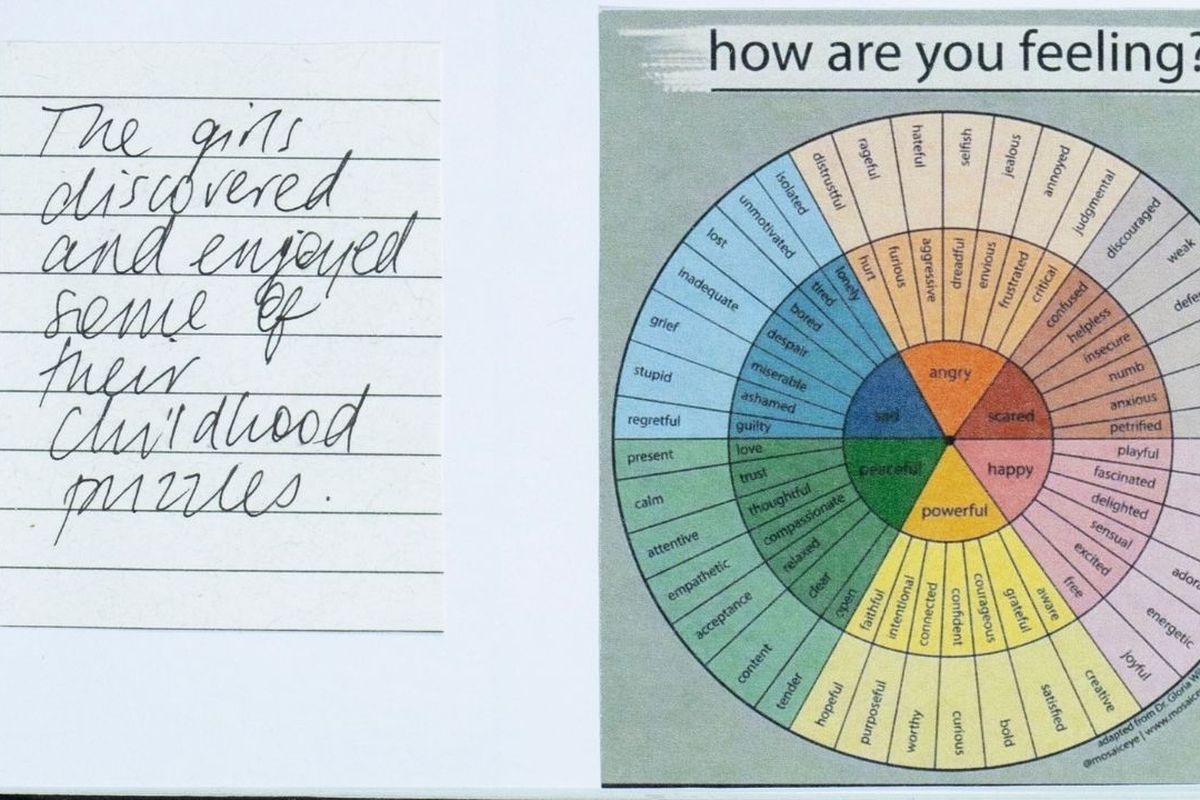 The girls
discovered
and enjoyed
some of
their
childhood
puzzles.
how are you feeling?
distrustful
rageful
hateful
selfish
jealous
annoyed
judgmental
discouraged
weak
isolated
unmotivated
lost
inadequate
grief
stupid
regretful
present
calm
attentive
empathetic
acceptance
content
tender
hopeful
purposeful
worthy
curious
bold
satisfied
creative
joyful
energetic
hurt
furious
aggressive
dreadful
envious
frustrated
critical
confused
helpless
insecure
numb
anxious
petrified
playful
fascinated
delighted
sensual
excited
free
aware
grateful
courageous
confident
connected
intentional
faithful
open
clear
relaxed
compassionate
thoughtful
trust
love
guilty
ashamed
miserable
despair
bored
tired
lonely
angry
scared
happy
powerful
peaceful
sad
adapted from Dr. Gloria
@mosaiceye | www.mosaice